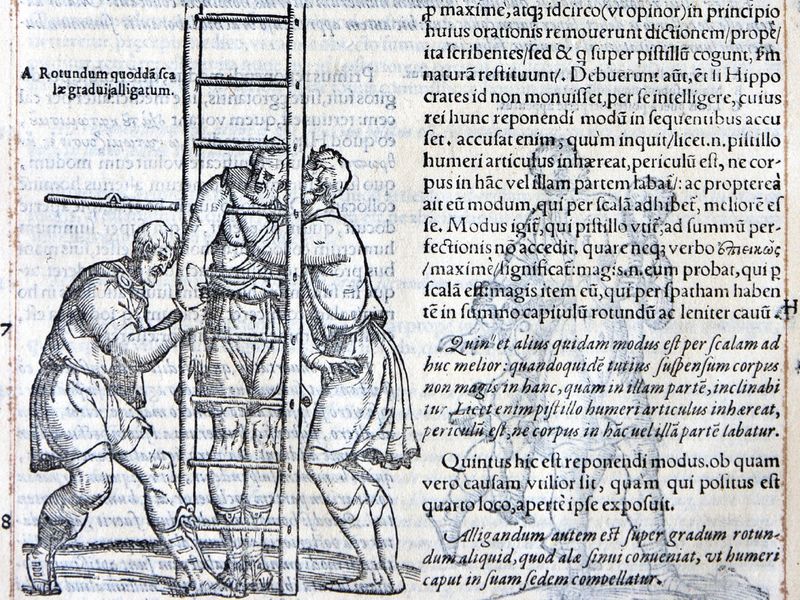 A Rotundum quoddā sca
læ gradui alligatum.
7
8
p maximè, atq; idcirco (vt opinor) in principio
huius orationis remouerunt dictionem / propè /
ita scribentes / sed & q super pistillū cogunt, s'm
naturā restituunt /. Debuerunt aūt, & si Hippo
crates id non monuisset, per se intelligere, cuius
rei hunc reponendi modū in sequentibus accu
set. accusat enim, quùm inquit / licet. n. pistillo
humeri articulus inhæreat, periculū est, ne cor-
pus in hāc vel illam partem labat /: ac proptereà
ait eū modum, qui per scalā adhibet, meliorē es
se. Modus igit, qui pistillo vtit, ad summū per-
fectionis nō accedit. quare neq; verbo ἐπιεικῶς
/ maximè / significat: magis. n. eum probat, qui p
scalā est: magis item eū, qui per spatham haben
tē in summo capitulū rotundū ac leniter cauū.
H
Quin et alius quidam modus est per scalam ad
huc melior: quandoquidē tutius suspensum corpus
non magis in hanc, quàm in illam partē, inclinabi
tur. Licet enim pistillo humeri articulus inhæreat,
periculū est, ne corpus in hāc vel illā partē labatur.
Quintus hic est reponendi modus. ob quam
vero causam vtilior sit, quàm qui positus est
quarto loco, apertè ipse exposuit.
Alligandum autem est super gradum rotun-
dum aliquid, quod alæ sinui conueniat, vt humeri
caput in suam sedem compellatur.